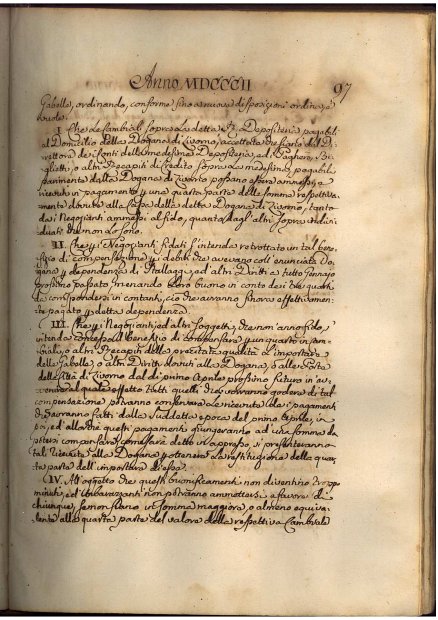 Anno MDCCCII
97
Gabelle, ordinando, conforme fino a nuove disposizioni ordina, e
vuole.
I. Che le Cambiali sopra la detta Depositeria pagabili
al Domicilio della Dogana di Livorno, accettate
de i fonti della medesima Depositeria, ed i Pagherò, Bi-
glietti, o altri Recapiti di Credito sopra la medesima, pagabili
parimente dalla Dogana di Livorno possano essere ammessi, e
ricevuti in pagamento una quarta parte delle somme respettiva-
mente dovute alla Cassa della detta Dogana di Livorno, tanto
da i Negozianti ammessi al fido, quanto dagl'altri sopra indivi-
duati che non lo sono.
II. Che i Negozianti fidati s'intenda retrottato un tal bene-
fizio di compensazione i debiti che avevano coll'enunciata Do-
gana dependenza di Stallagg, ed altri Diritti a tutto Gennajo
prossimo passato tenendo loro buono in conto dei tre quarti
da corrispondersi in contanti, ciò che avranno finora effettivamen-
te pagato detta dependenza.
III. Che i Negozianti, ed altri Soggetti, che non anno fido,
intenda concesso il benefizio di compensare un quarto in Cam-
biali, o altri Recapiti della precitata qualità l'importare
delle Gabelle, o altri Diritti dovuti alla Dogana, o alle Porte
della Città di Livorno dal dì primo Aprile prossimo futuro in av-
venire al quale effetto tutti quelli che vorranno godere di tal
compensazione potranno conservare le ricevute de i pagamenti
che saranno fatti dalla suddetta epoca del primo Aprile, in
poi, ed allorché questi pagamenti giungeranno ad una somma da
potersi compensare, come sarà detto in appresso, si presenteranno
tali ricevute alla Dogana otterrere la restituzione della quar-
ta parte dell'importare di essa.
IV. All'oggetto che questi buonificamenti non diventino troppo
minuti, ed imbarazzanti non potranno ammettersi a favore di
chiunque, se non siano in somma maggiore, o almeno equiva-
lente alla quarta parte del valore della respettiva Cambiale